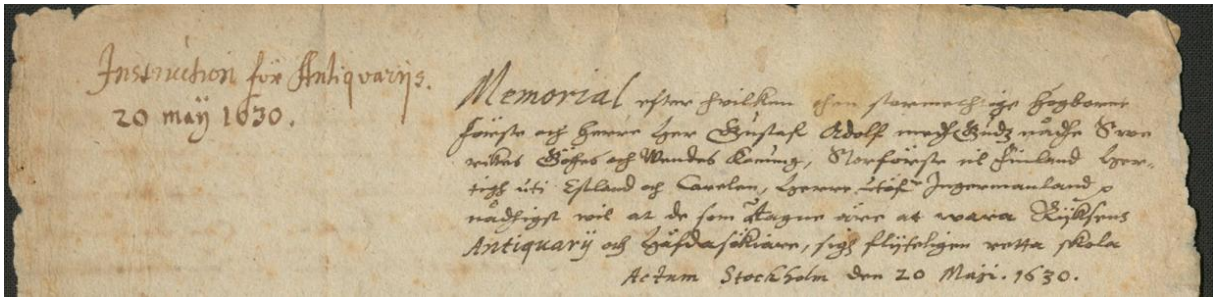 Instruction för Antiquarijs.
20 maÿ 1630.
Memorial efter hvilken then stormechtige Högborne
Förste och Herre Her Gustaf Adolf medh Gudz nådhe Swe
rikes Göthes och Wendes Konung, Storförste til Finland Her-
tigh uti Estland och Carelen, Herre utöfr Ingermanland
nådhigst wil at de som tagne äre at wara Rijksens
Antiquarij och Häfdasökiare, sigh flijteligen retta skola
Actum Stockholm den 20 Maji. 1630.